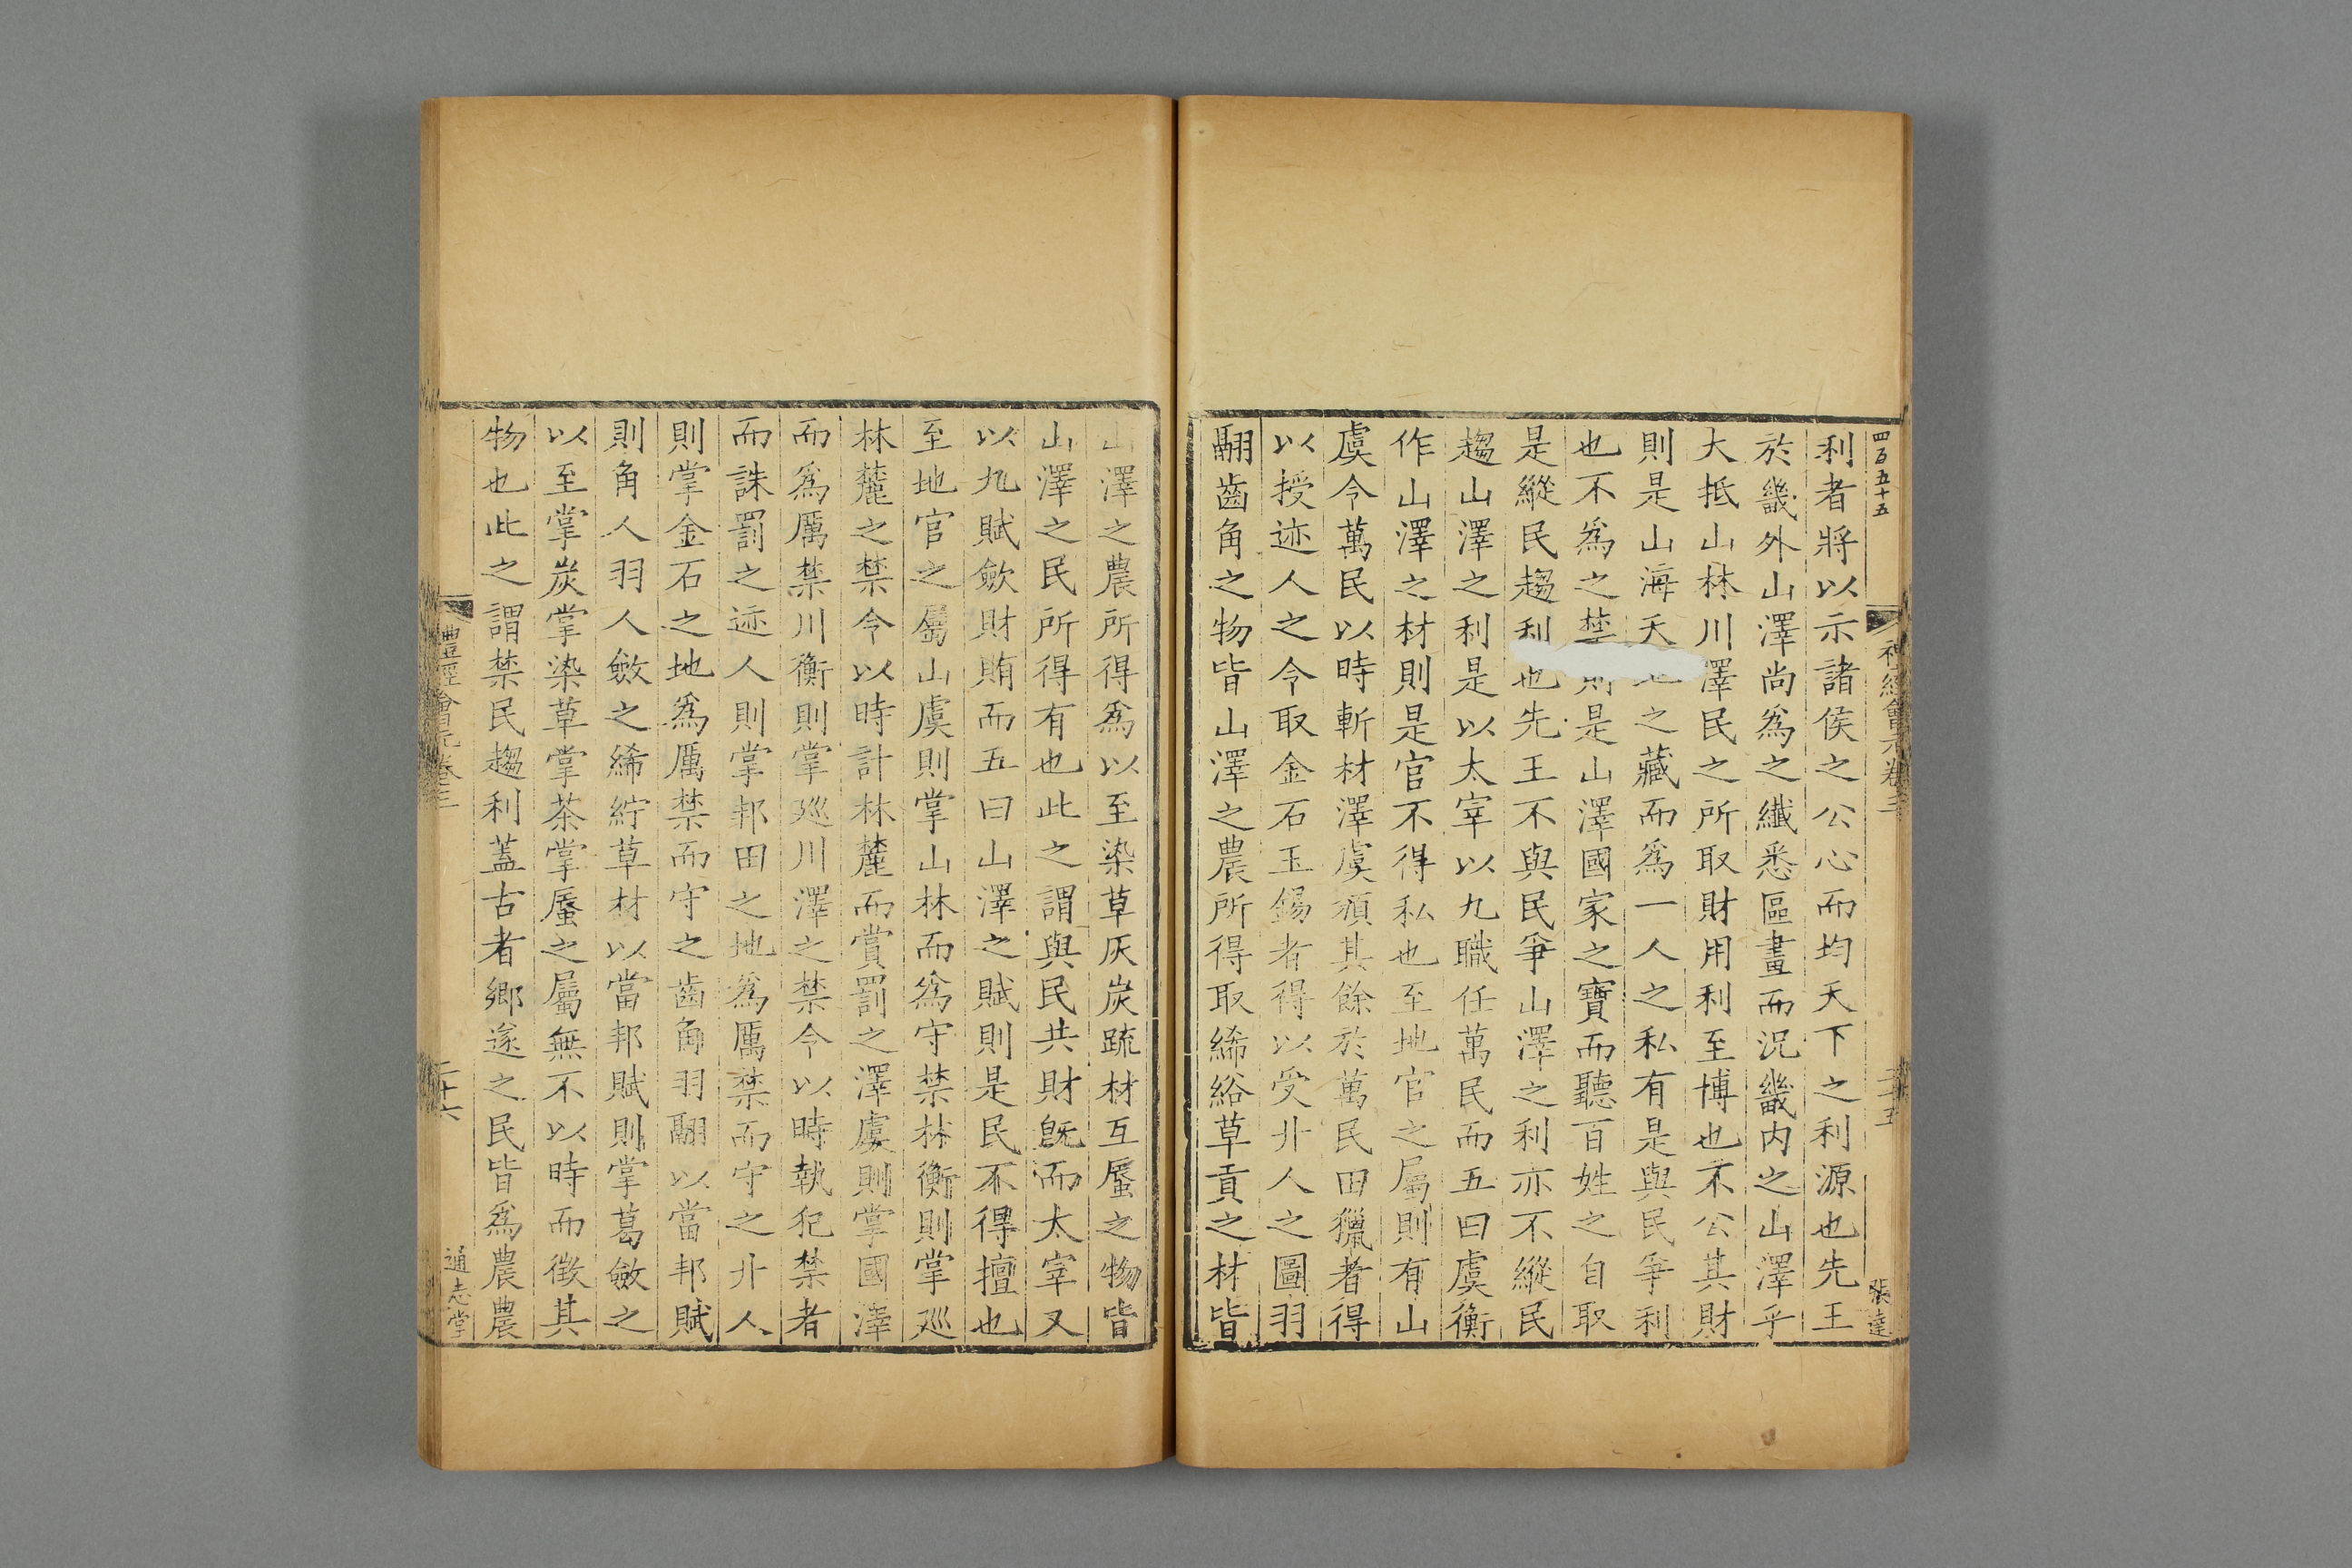 四百五十五
利者將以示諸侯之公心而均天下之利源也先王
於畿外山澤尚爲之纖悉區畫而況畿内之山澤乎
大抵山林川澤民之所取財用利至博也不公其財
則是山海天之藏而爲一人之私有是與民爭利
也不爲之禁則是山澤國家之寶而聽百姓之自取
是縱民趨利也先王不與民爭山澤之利亦不縱民
趨山澤之利是以太宰以九職任萬民而五曰虞衡
作山澤之材則是官不得私也至地官之屬則有山
虞令萬民以時斬材澤虞頒其餘於萬民田獵者得
以授迹人之令取金石玉錫者得以受卝人之圖羽
翮齒角之物皆山澤之農所得取絺綌草貢之材皆
張達
山澤之農所得爲以至染草灰炭疏材互蜃之物皆
山澤之民所得有也此之謂與民共財旣而太宰又
以九賦斂財賄而五曰山澤之賦則是民不得擅也
至地官之屬山虞則掌山林而爲守禁林衡則掌巡
林麓之禁令以時計林麓而賞罰之澤虞則掌國澤
而爲厲禁川衡則掌巡川澤之禁令以時執犯禁者
而誅罰之迹人則掌邦田之地爲厲禁而守之卝人
則掌金石之地爲厲禁而守之齒角羽翮以當邦賦
則角人羽人斂之絺綌草材以當邦賦則掌葛斂之
以至掌炭掌染草掌荼掌蜃之屬無不以時而徵其
物也此之謂禁民趨利蓋古者鄉遂之民皆爲農農
禮經會元卷三
二十六
通志堂